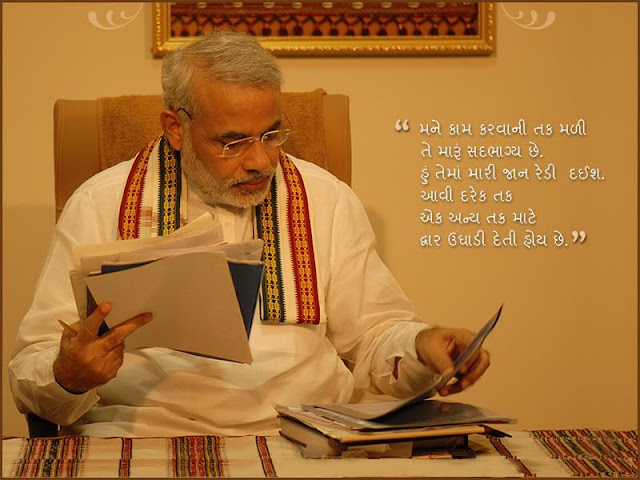 “ મને કામ કરવાની તક મળી
તે મારૂં સદભાગ્ય છે.
હું તેમાં મારી જાન રેડી દઈશ.
આવી દરેક તક
એક અન્ય તક માટે
દ્વાર ઉઘાડી દેતી હોય છે.”